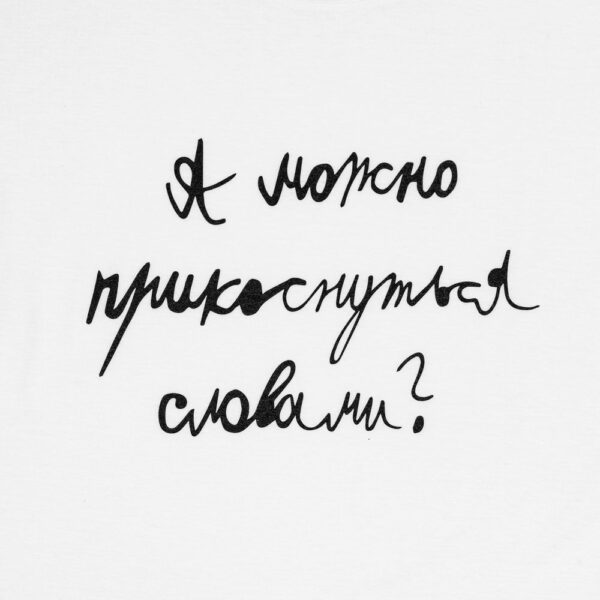 А можно
прикоснуться
словами?